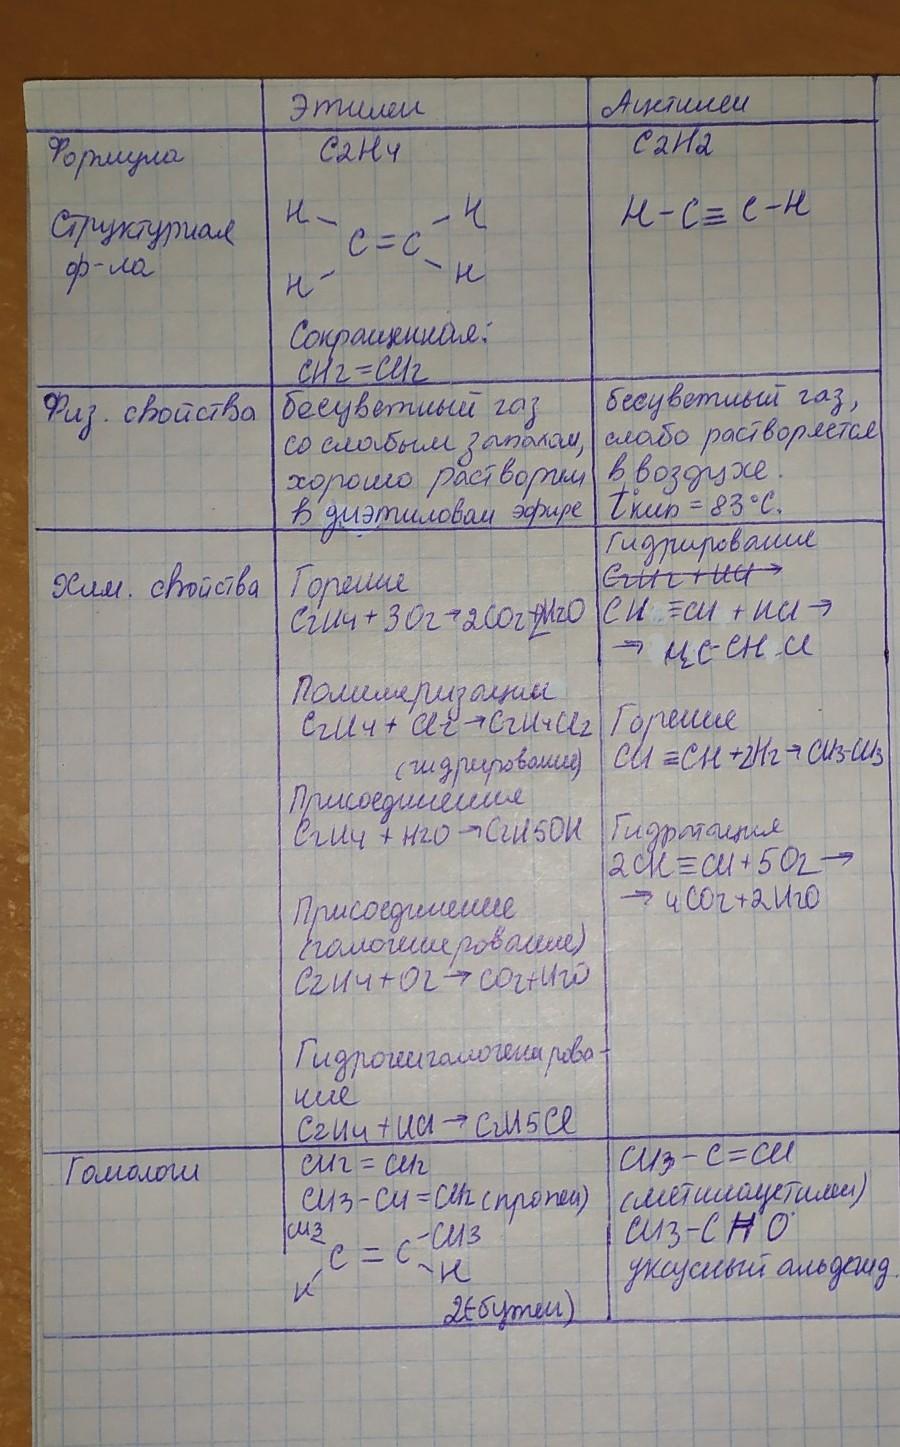 Этилен
Ацетилен
Формула
C2H4
C2H2
Структурная
ф-ла
H H
C = C
H H
Сокращенная:
CH2 = CH2
H - C ≡ C - H
Физ. свойства
бесцветный газ
со слабым запахом,
хорошо растворим
в диэтиловом эфире
бесцветный газ,
слабо растворяется
в воздухе.
t°кип = 83°C.
Хим. свойства
Горение
C2H4 + 3O2 → 2CO2 + 2H2O
Полимеризации
C2H4 + Cl2 → C2H4Cl2
(гидрирование)
Присоединения
C2H4 + H2O → C2H5OH
Присоединение
(галогенирование)
C2H4 + O2 → CO2 + H2O
Гидрогенгалогенирова-
ние
C2H4 + HCl → C2H5Cl
Гидрирование
C2H2 + HCl →
CH ≡ CH + HCl →
→ H2C-CH Cl
Горения
CH ≡ CH + 2H2 → CH3-CH3
Гидратация
2CH ≡ CH + 5O2 →
→ 4CO2 + 2H2O
Гомологи
CH2 = CH2
CH3 - CH = CH2 (пропен)
CH3 CH3
C = C
H H
2(-бутен)
CH3 - C = CH
(метилацетилен)
CH3 - C H O
уксусный альдегид.